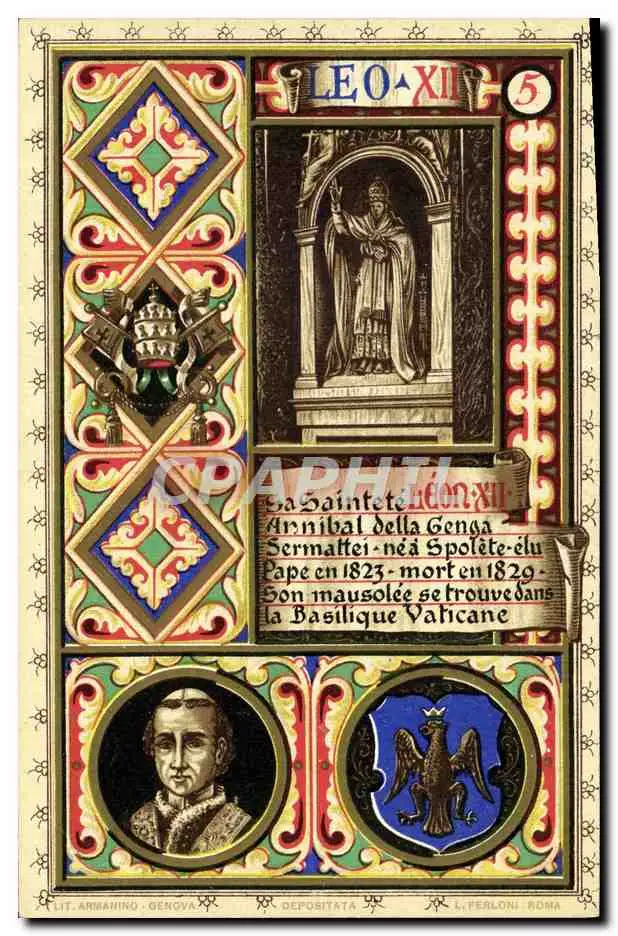 LEO XII
5
Sa Sainteté Léon·XII·
Annibal della Genga
Sermattei-né à Spolète-élu
Pape en 1823-mort en 1829-
Son mausolée se trouve dans
la Basilique Vaticane
CPAPHIL
LIT. ARMANINO - GENOVA
DEPOSITATA
L. FERLONI ROMA